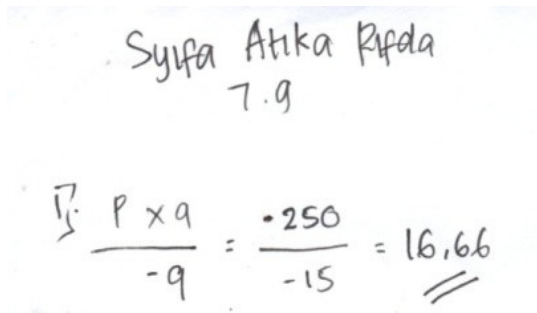 Syifa Atika Rifda
7.9
1). P x q / -q = -250 / -15 = 16,66